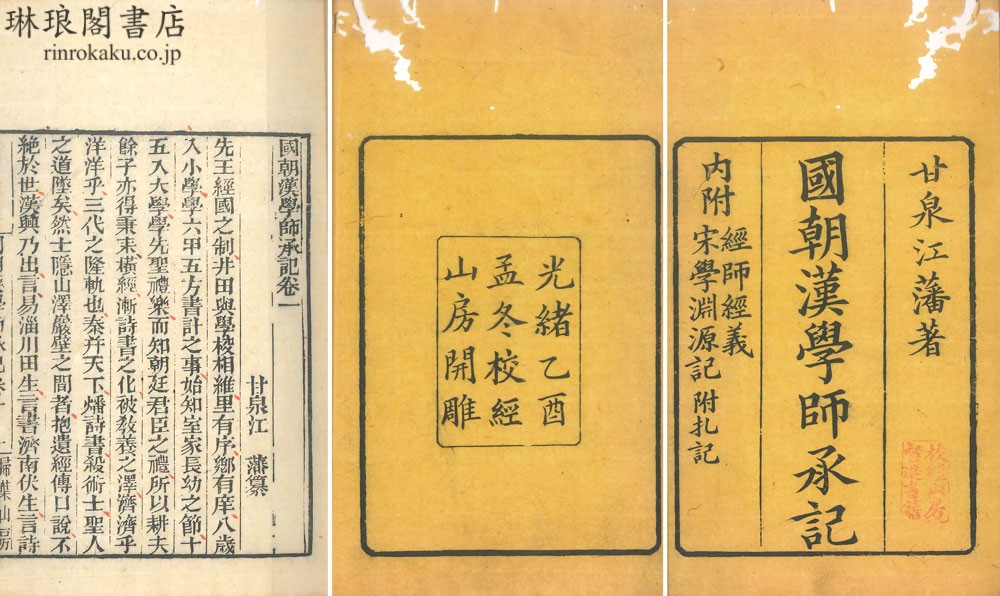 琳琅閣書店
rinrokaku.co.jp
甘泉江藩著
國朝漢學師承記
內附
經師經義
宋學淵源記附札記
光緒乙酉
孟冬校經
山房開雕
國朝漢學師承記卷一
甘泉江　藩纂
先王經國之制井田與學校相維里有序鄉有庠八歲
入小學學六甲五方書計之事始知室家長幼之節十
五入大學學先聖禮樂而知朝廷君臣之禮所以耕夫
餘子亦得秉耒橫經漸詩書之化被敎義之澤濟濟乎
洋洋乎三代之隆軌也秦并天下燔詩書殺術士聖人
之道墜矣然士隱山澤巖壁之間者抱遺經傳口說不
絶於世漢興乃出言易淄川田生言書濟南伏生言詩